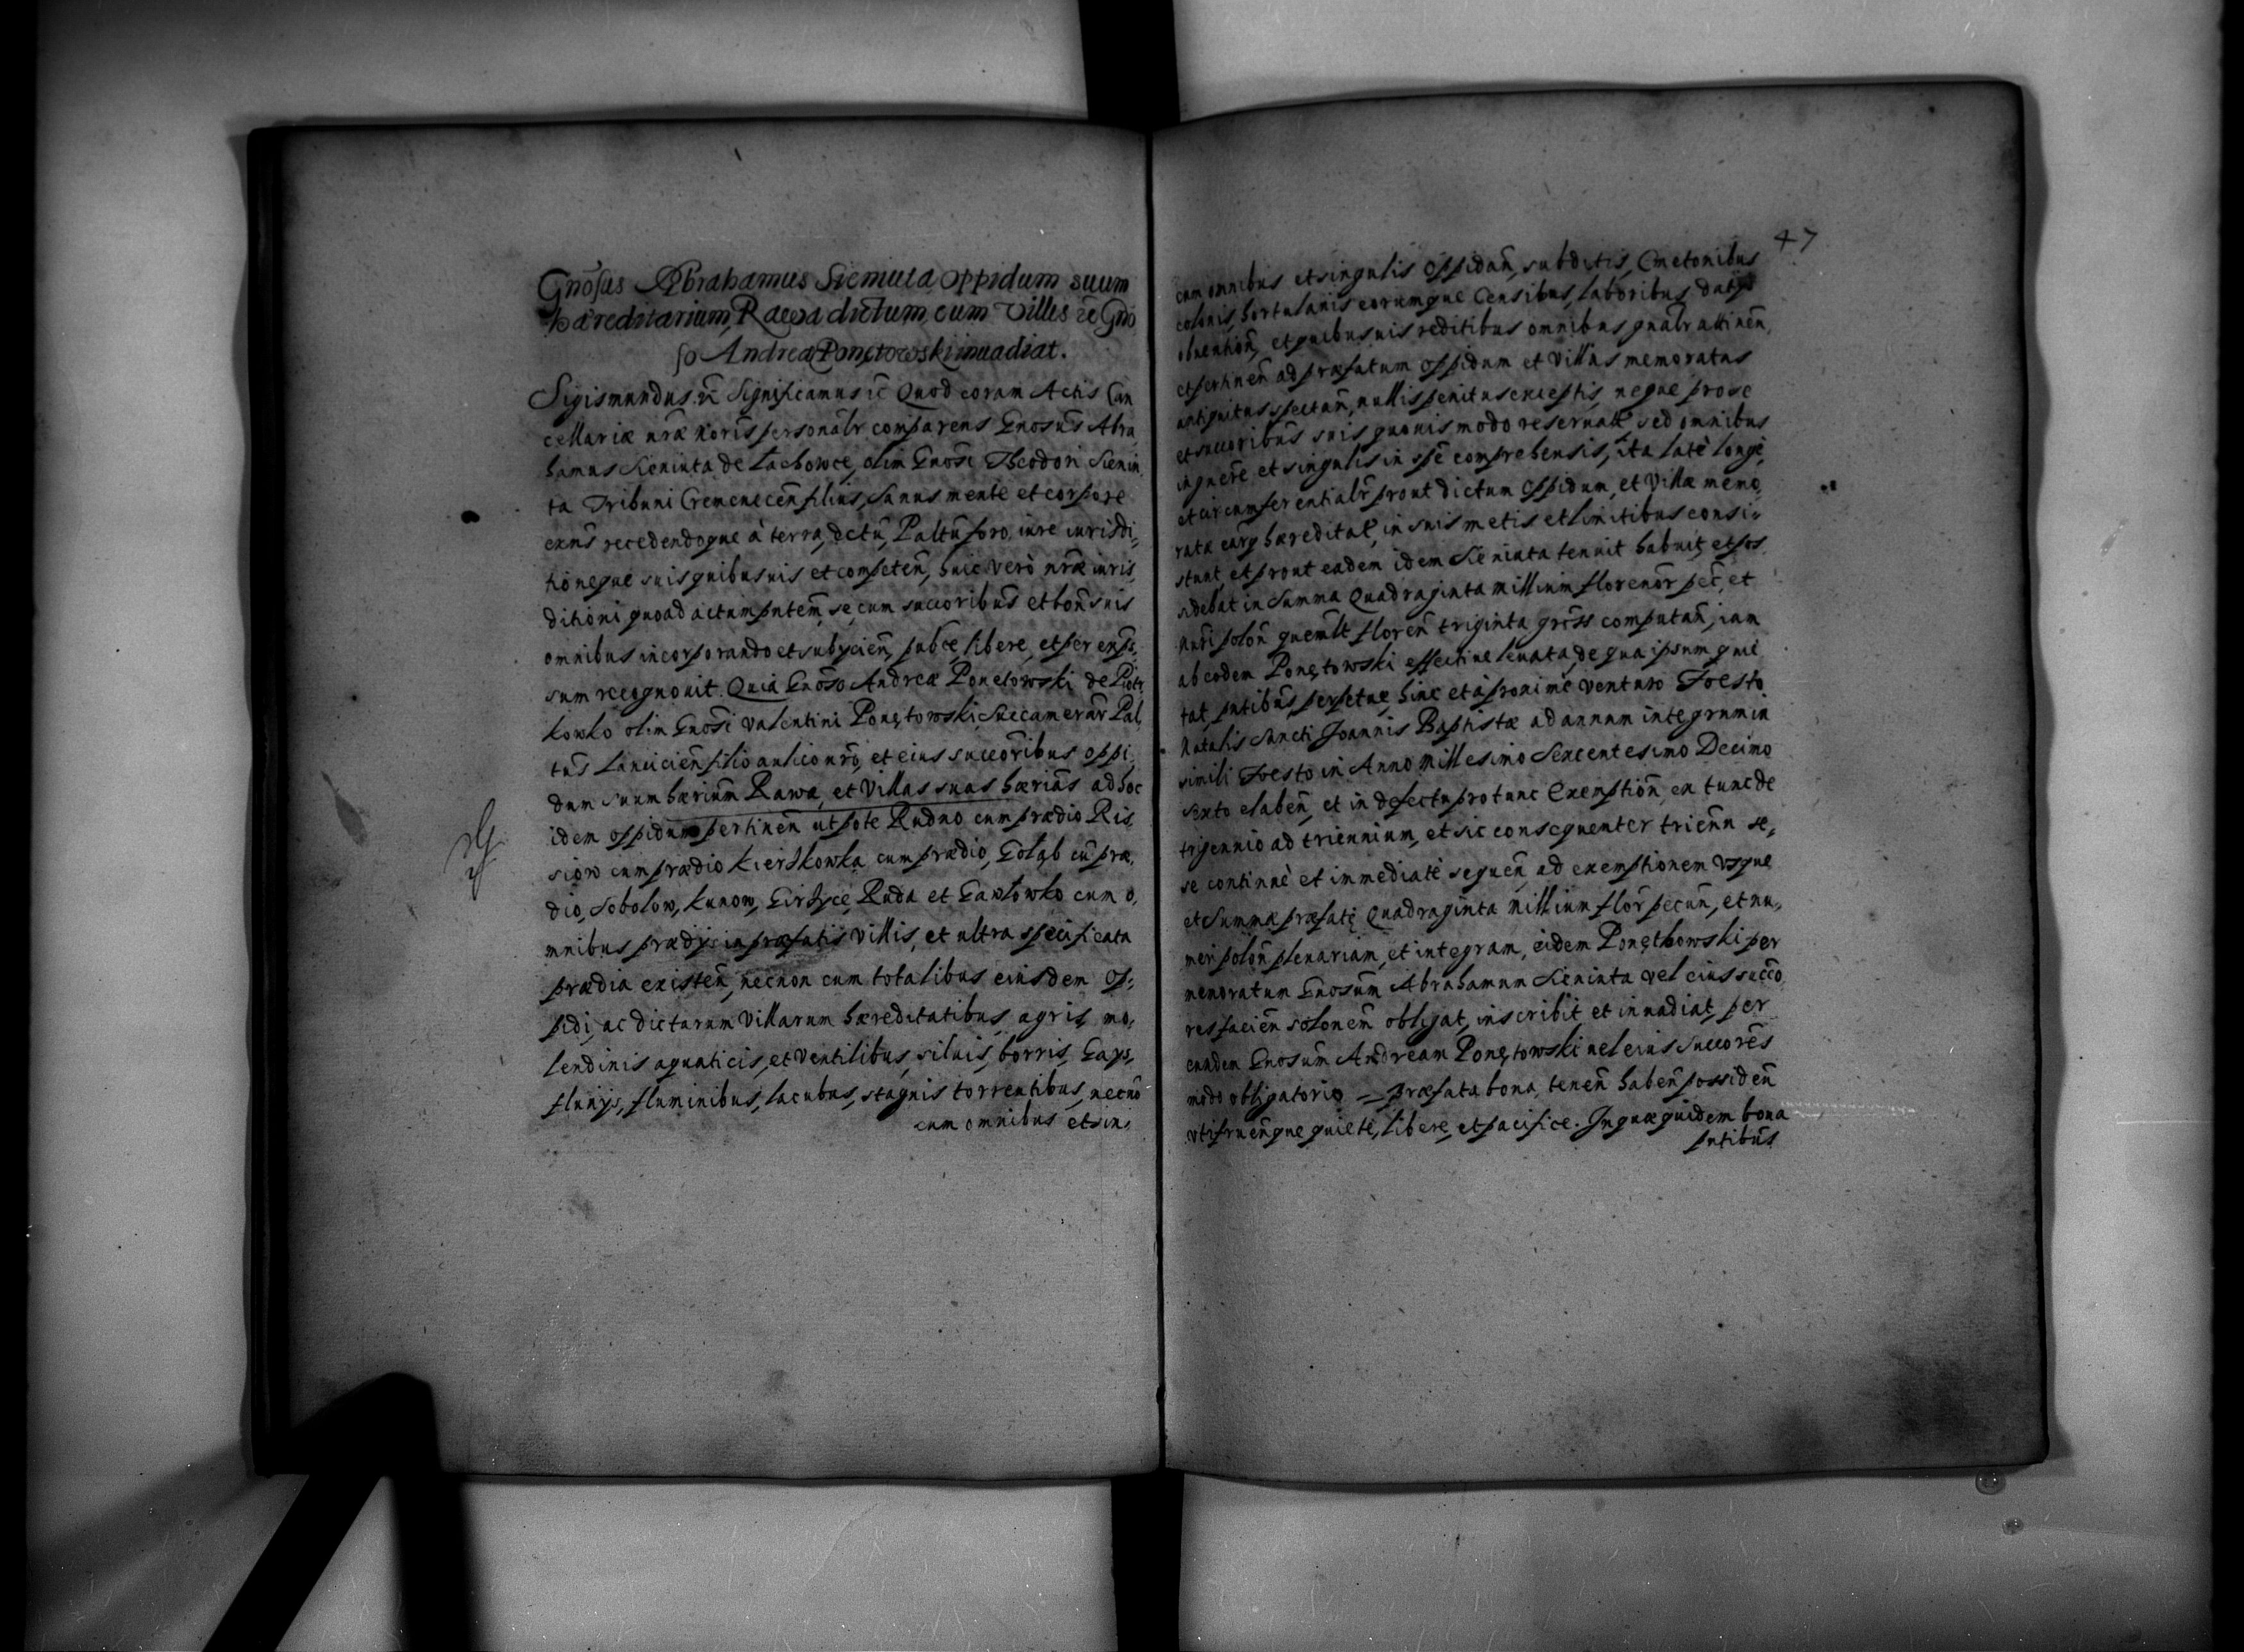 Gnõsus Abrahamus Sieniuta oppidum suum
hæreditarium, Rawa dictum, cum Villis ec̃ Gnõ
so Andreæ Ponętowski inuadiat.
Sigismundus. ec̃ Significamus ec̃ Quod coram Actis Can
cellariæ nr̃æ Maioris personalr̃ comparens Gnosus̃ Abra,
hamus Sieniuta de Lachowce, olim Gnosĩ Theodori Sieniu
ta Tribuni Cremenecen̄ filius, sanus mente et corpore
exn̄s recedendoque à terra, dctũ, Paltũ foro, iure iurisdi,
tioneque suis quibusuis et competen̄, huic verò nr̃æ iuris,
ditioni quoad actum pn̄tem, se cum succoribus̃ et bon̄ suis
omnibus incorporando et subÿcien̄, pubce, libere, et per expr̃,
sum recognouit. Quia Gnoso Andreæ Ponętowski de Piotr,
kowko olim Gnosĩ Valentini Ponętowski, Succamerar̃ Pal,
tũs Lanicien̄ filio aulico nr̃o, et eius succoribus̃ oppi,
dum suum hærium̃ Rawa, et Villas suas hærias̃ ad hoc
idem oppidum pertinen̄ utpote Rudno cum prædio Ris,
siow cum prædio Kierzkowka cum prædio, Gołąb cũ præ,
dio, Sobolow, Kunow, Girzyce, Ruda et Gawłowko cum o,
mnibus prædÿs in præfatis Villis, et ultra specificata
prædia existen̄, necnon cum totalibus eiusdem Op,
pidi, ac dictarum Villarum hæreditatibus, agris, mo,
lendinis aquaticis, et ventilibus, siluis, borris, Gays,
fluuÿs, fluminibus, lacubus, stagnis torrentibus, necnõ
cum omnibus et sin,
47
cum omnibus et singulis oppidan̄, subditis, Cmetonibus
colonis, hortulanis eorumque Censibus, laboribus, datÿs
obuention̄, et quibusuis reditibus omnibus gnalr̃ attinen̄,
et pertinen̄ ad præfatum oppidum et Villas memoratas
antiquitus spectan̄, nullis penitus exceptis, neque pro se
et succoribus̃ suis quouis modo reseruat̃ sed omnibus
in genere et singulis in spẽ comprehensis, ita latè longè,
et circumferentialr̃ prout dictum oppidum, et Villæ memo,
ratæ earq̃ hæreditat̃, in suis metis et limitibus consi,
stunt, et prout eadem idem Sieniuta tenuit habuit, et pos
sidebat in Summa Quadraginta millium florenor̃ pec̃, et
num̃i polon̄ quemlt̃ floren̄ triginta gross̃ computan̄, iam
ab eodem Ponętowski effectiue leuata, de qua ipsum qui
tat, pn̄tibus̃ perpetue, hinc et à proximè venturo Foesto
Natalis Sancti Joannis Baptistæ ad annum integrum in
simili Foesto in Anno Millesimo Sexcentesimo Decimo
Sexto elaben̄, et in defectu pro tunc Exemption̄, ex tunc de
triennio ad triennium, et sic consequenter trienn̄ se,
se continuè et immediatè sequen̄, ad exemptionem vsque
et Summæ præfatę Quadraginta Millium flor̃ pecun̄, et nu,
meri polon̄ plenariam, et integram, eidem Ponęthowski per
memoratum Gnosum̃ Abrahamum Sieniuta vel eius succo,
res facien̄ solonem̃ obligat, inscribit, et inuadiat, per
eundem Gnosum̃ Andream Ponętowski vel eius Succores̃
modo obligatorio præfata bona, tenen̄ haben̄ possiden̄
vtifruen̄que quiete, libere, et pacifice. In quæ quidem bona
pn̄tibus̃